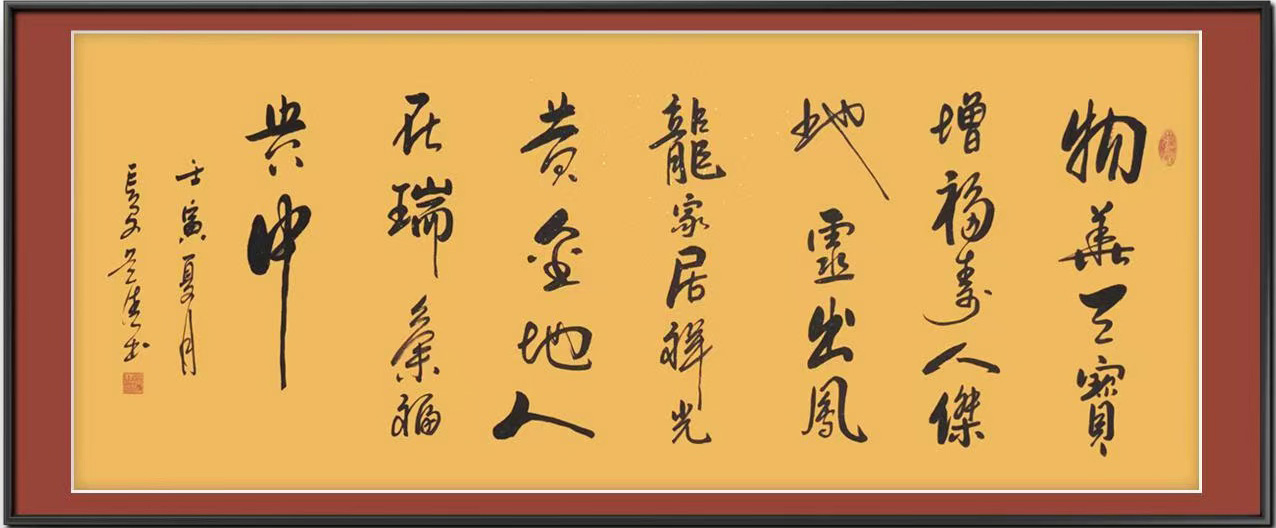 物華天寶
增福壽人傑
地靈出鳳
龍家居祥光
黄金地人
在瑞氣福
興中
壬寅夏月
书